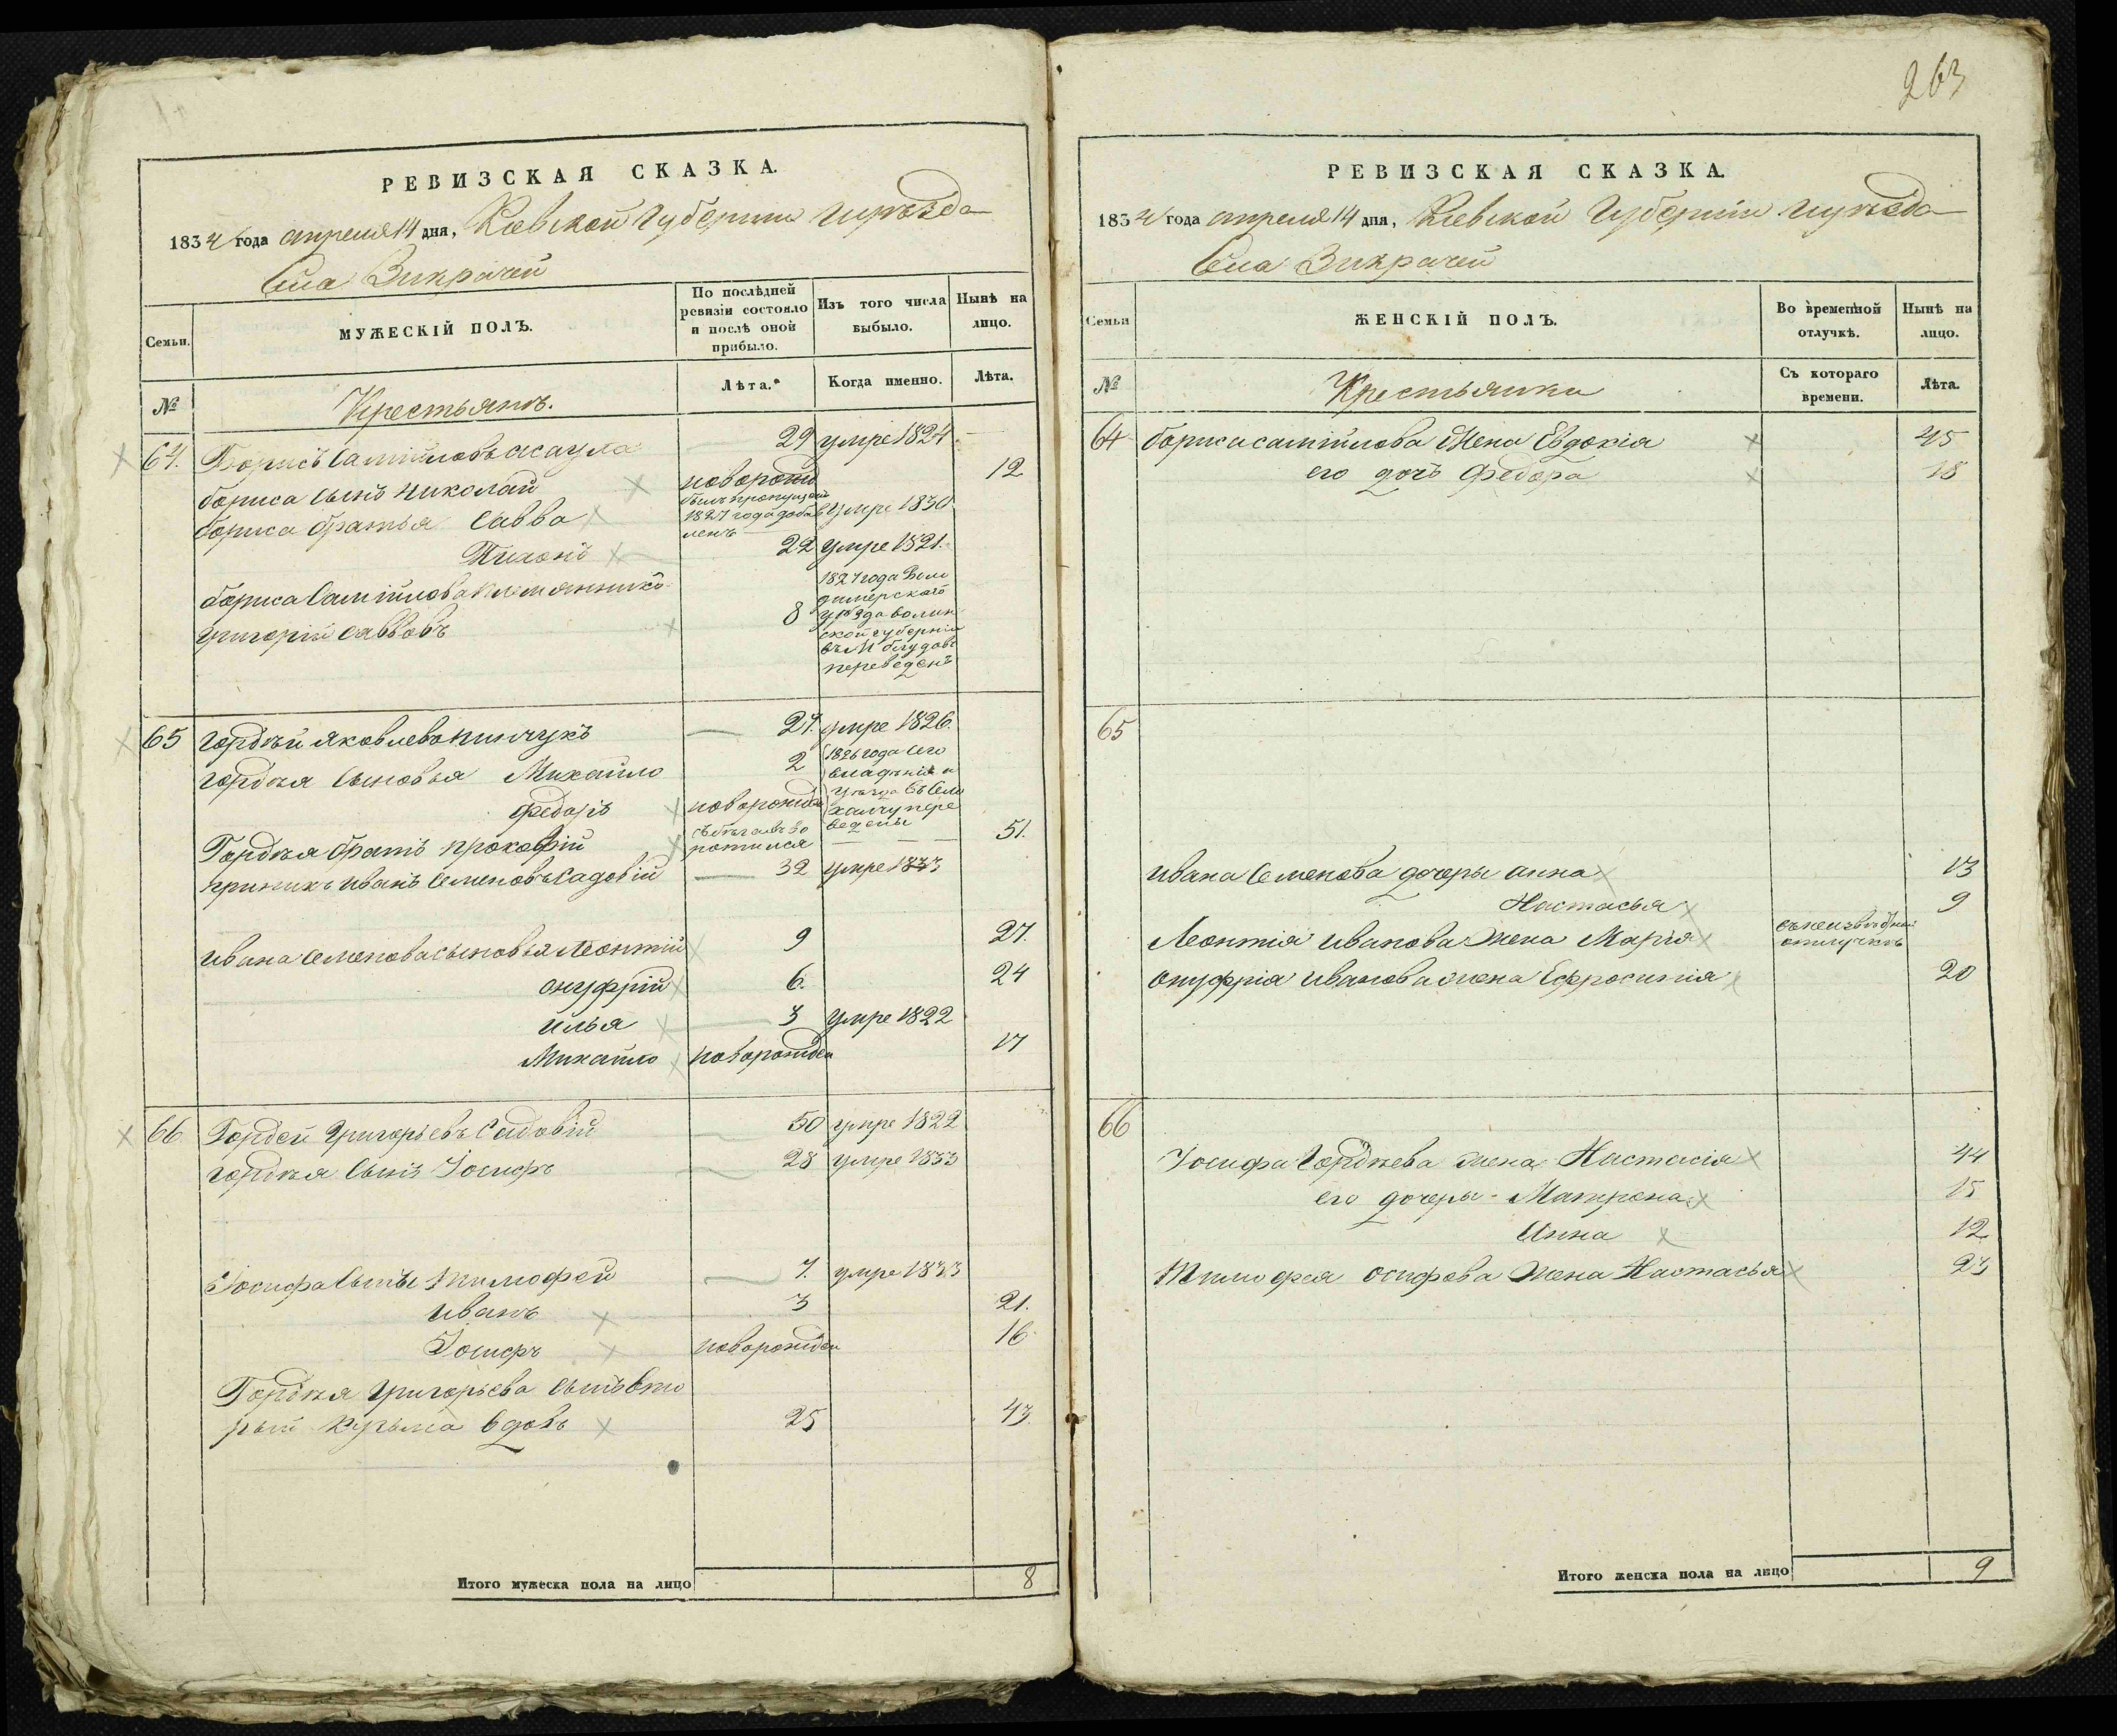 263
РЕВИЗСКАЯ СКАЗКА.
1834 года апреля 14 дня, Киевской Губернии и уезда
Села Викрачей
Семьи.
МУЖЕСКІЙ ПОЛЪ.
По послѣдней ревизіи состояло и послѣ оной прибыло.
Изъ того числа выбыло.
Нынѣ на лицо.
№
Крестьянъ.
Лѣта.
Когда именно.
Лѣта.
64. Борисъ Самійловъ асаула 29 умре 1824
бориса сынъ николай новорожд 12
бориса братья Савва былъ пропущенъ 1827 года добавленъ умре 1830
Тихонъ 22 умре 1821.
бориса Самійлова племянникъ
григорій саввовъ 8 1827 года Вла
димерского
уѣзда волин
ской губерніи
въ М
переведенъ
65 гордѣй яковлевъ 27. умре 1826.
гордѣя сыновья Михайло 2 1826 года Сего
владѣнія и
федоръ новорожден уезда въ село
халчу пере
ведены
Гордѣя братъ прокофій съ бѣговъ во
ротился 51.
иванъ Семеновъ Садовій 32 умре 1833
ивана семенова сыновья Леонтій 9 27.
онуфрій 6. 24
илья 3 умре 1822
Михайло новорожден 17
66 Гордей Григорьевъ Садовій 50 умре 1822
гордѣя сынъ Іосифъ 28 умре 1833
Іосифа сыны тимофей 7. умре 1833
иванъ 3 21.
Іосифъ новорожден 16
Гордѣя Григорьева сынъ вто
рый Кузьма вдовъ 25 43.
Итого мужеска пола на лицо 8
РЕВИЗСКАЯ СКАЗКА.
1834 года апреля 14 дня, Киевской Губерніи и уѣзда
Села Викрачей
Семьи
ЖЕНСКІЙ ПОЛЪ.
Во временной отлучкѣ.
Нынѣ на лицо.
№
Крестьянки
Съ котораго времени.
Лѣта.
64 бориса самійлова жена Евдокія 45
его дочь федора 18
65
ивана Семенова дочеры анна 13
Настасья 9
Леонтія иванова жена Марія въ неизвѣстной
отлучкѣ
онуфрія иванова жена Ефросинія 20
66
Іосифа Гордѣева жена Настасія 44
его дочеры Матрена 15
Анна 12
Тимофея осифова жена Настасья 23
Итого женска пола на лицо 9